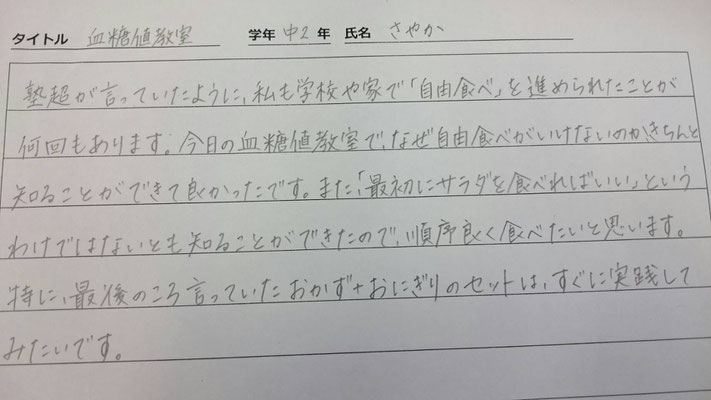 タイトル 血糖値教室 学年 中2 年 氏名 さやか
塾超が言っていたように、私も学校や家で「自由食べ」を進められたことが
何回もあります。今日の血糖値教室で、なぜ自由食べがいけないのか、きちんと
知ることができて良かったです。また、「最初にサラダを食べればいい」という
わけではないとも知ることができたので、順序良く食べたいと思います。
特に、最後のころ言っていたおかず+おにぎりのセットは、すぐに実践して
みたいです。